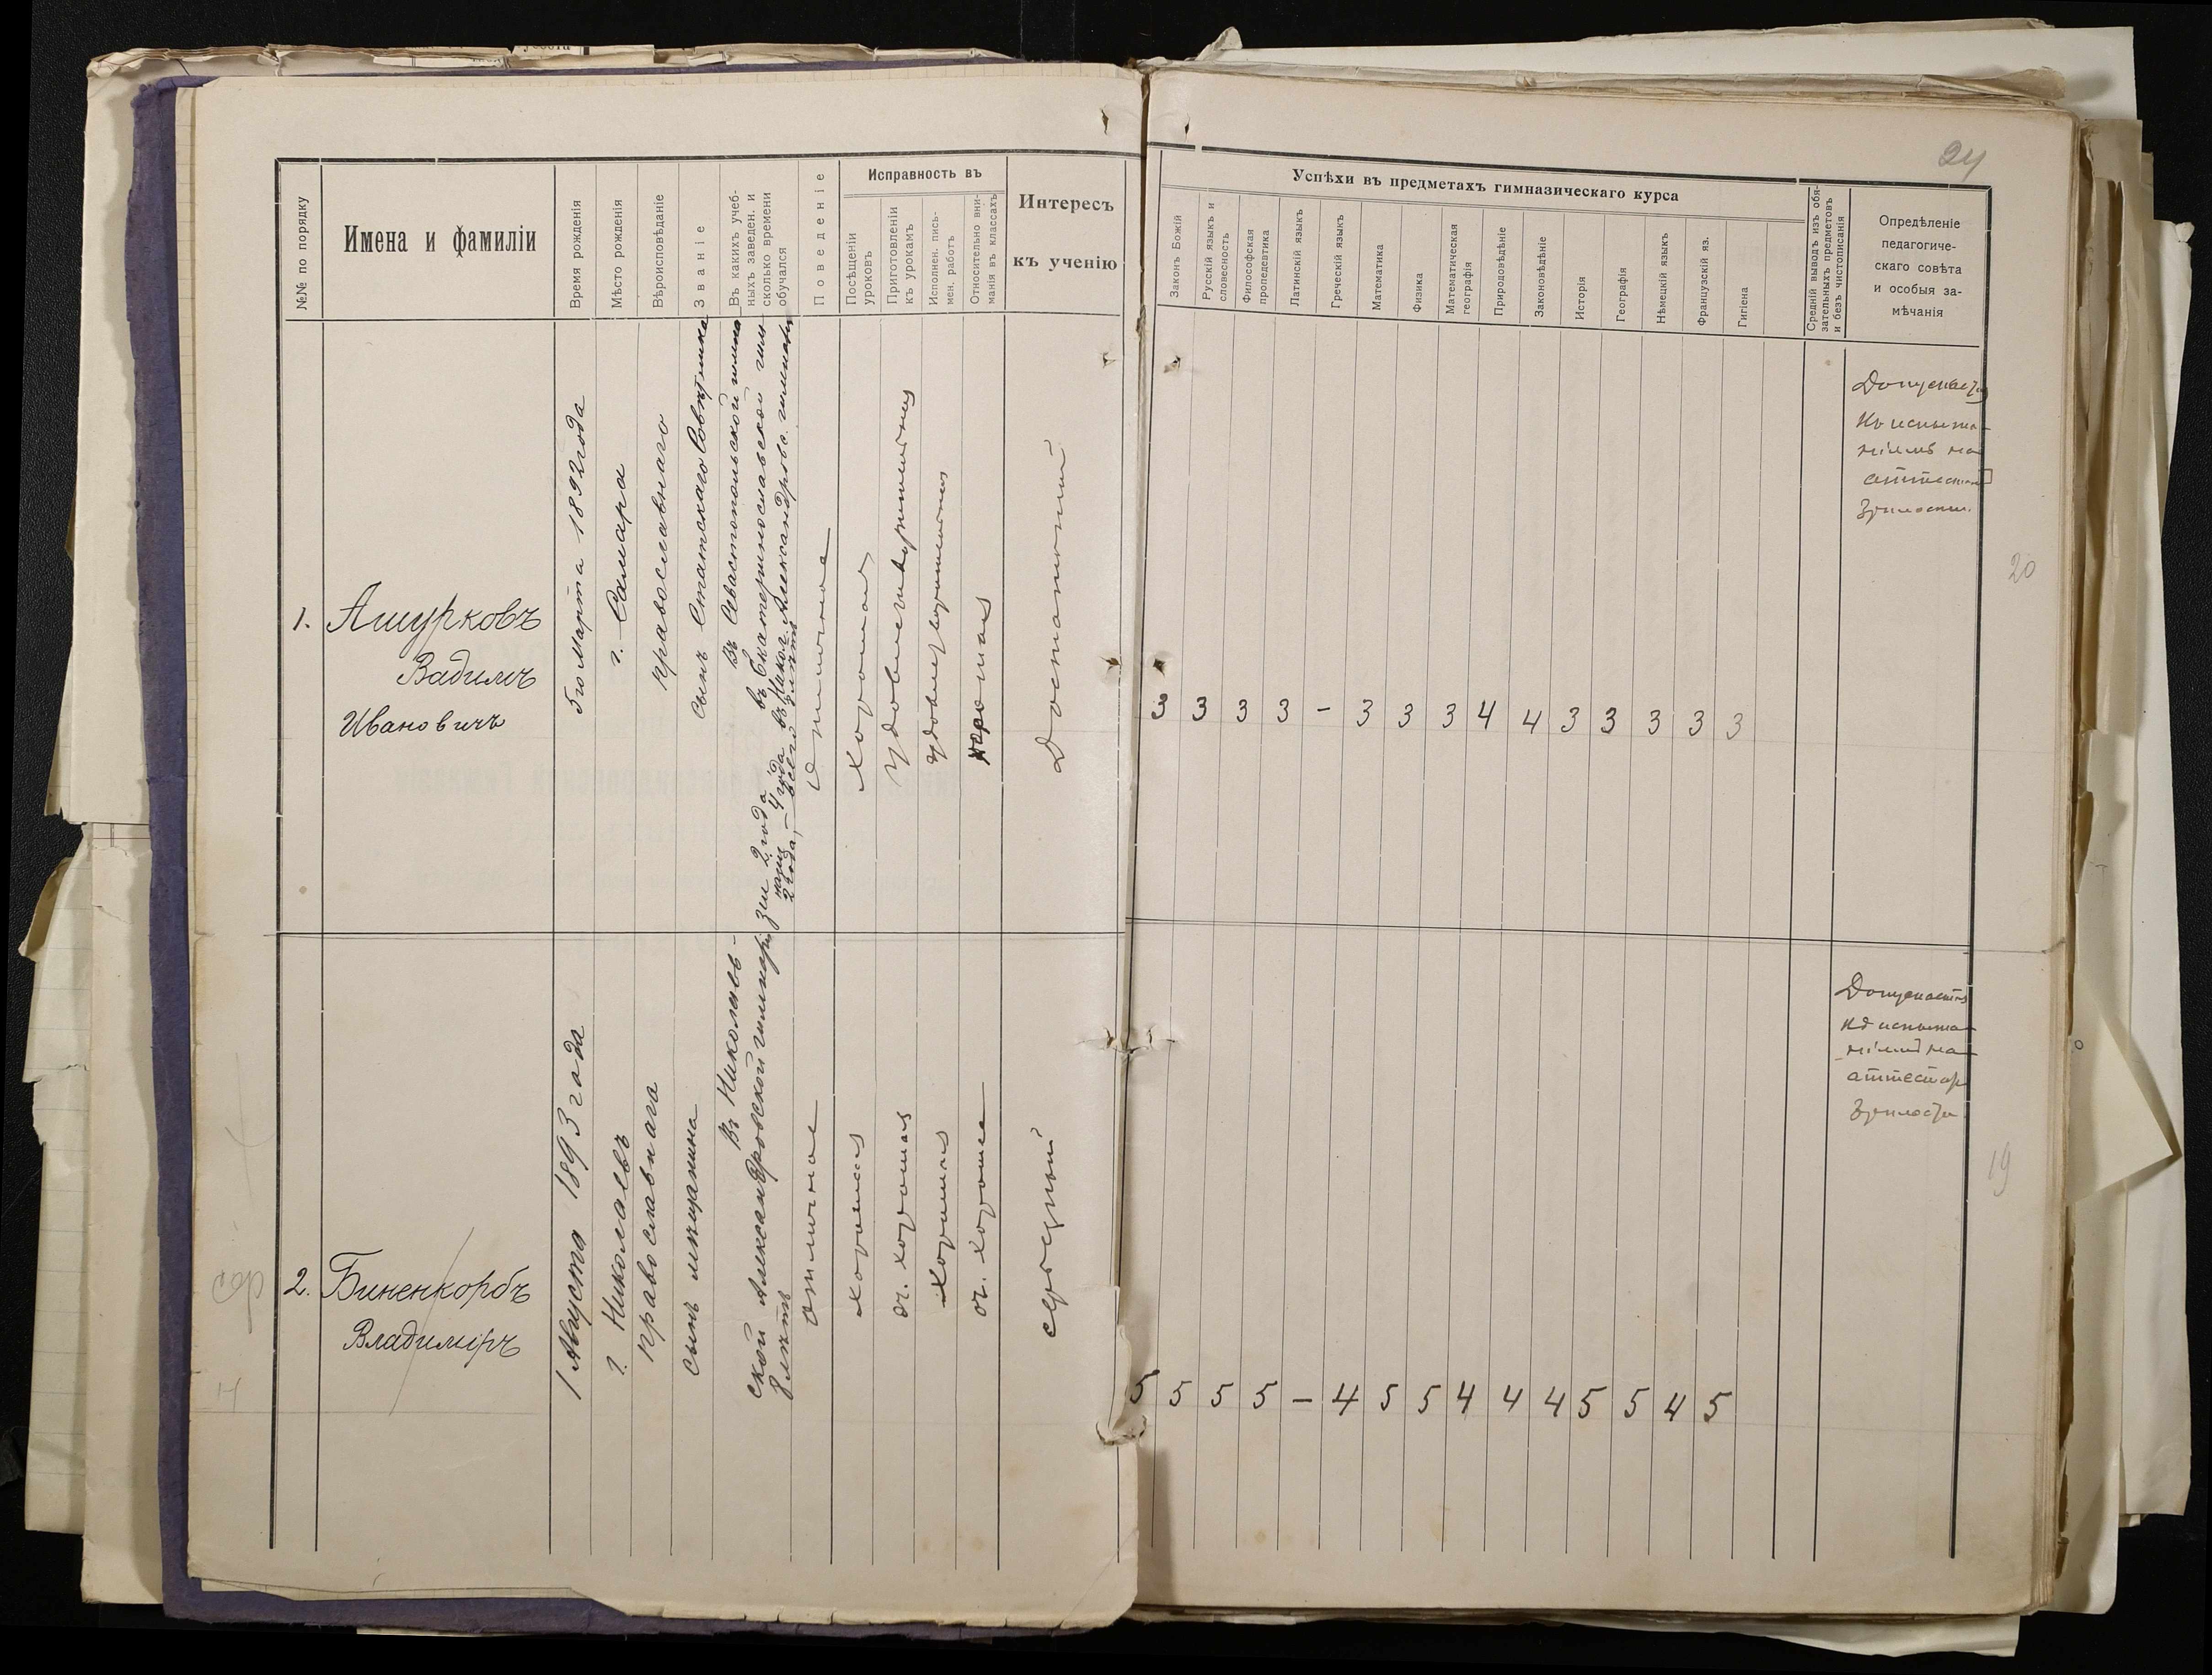 24
№№ по порядку
Имена и фамиліи
Время рожденія
Мѣсто рожденія
Вѣроисповѣданіе
Званіе
Въ какихъ учеб-
ныхъ заведен. и
сколько времени
обучался
Поведеніе
Исправность въ
Посѣщеніи
уроковъ
Приготовленіи
къ урокамъ
Исполнен. пись-
мен. работъ
Относительно вни-
манія въ классахъ
Интересъ
къ ученію
Успѣхи въ предметахъ гимназическаго курса
Законъ Божій
Русскій языкъ и
словесность
Философская
пропедевтика
Латинскій языкъ
Греческій языкъ
Математика
Физика
Математическая
географія
Природовѣдѣніе
Законовѣдѣніе
Исторія
Географія
Нѣмецкій языкъ
Французскій яз.
Гигіена
Средній выводъ изъ обя-
зательныхъ предметовъ
и безъ чистописанія
Опредѣленіе
педагогиче-
скаго совѣта
и особыя за-
мѣчанія
1.
Ашурковъ
Вадимъ
Ивановичъ
5го Марта 1892 года
г. Самара
православнаго
сынъ Статскаго Совѣтника
Въ Севастопольской гимна
зіи 2 года
въ Екатеринославской гим
назіи 4 года
въ Никол. Александровс. гимназіи
2 года, – всего 8 лѣтъ
Отличное
хорошая
Удовлетворительная
удовлетворительная
хорошая
Достаточный
3 3 3 3 - 3 3 3 4 4 3 3 3 3 3
Допускается
къ испыта-
ніямъ на
аттестатъ
зрѣлости.
20
2.
Биненкорбъ
Владиміръ
1 Августа 1893 года
г. Николаевъ
православнаго
сынъ мѣщанина
Въ Николаев-
ской Александровской гимназіи
8 лѣтъ
отличное
хорошая
оч. хорошая
хорошая
оч. хорошее
5 5 5 5 - 4 5 5 4 4 4 5 5 4 5
Допускается
къ испыта-
ніямъ на
аттестатъ
зрѣлости
19